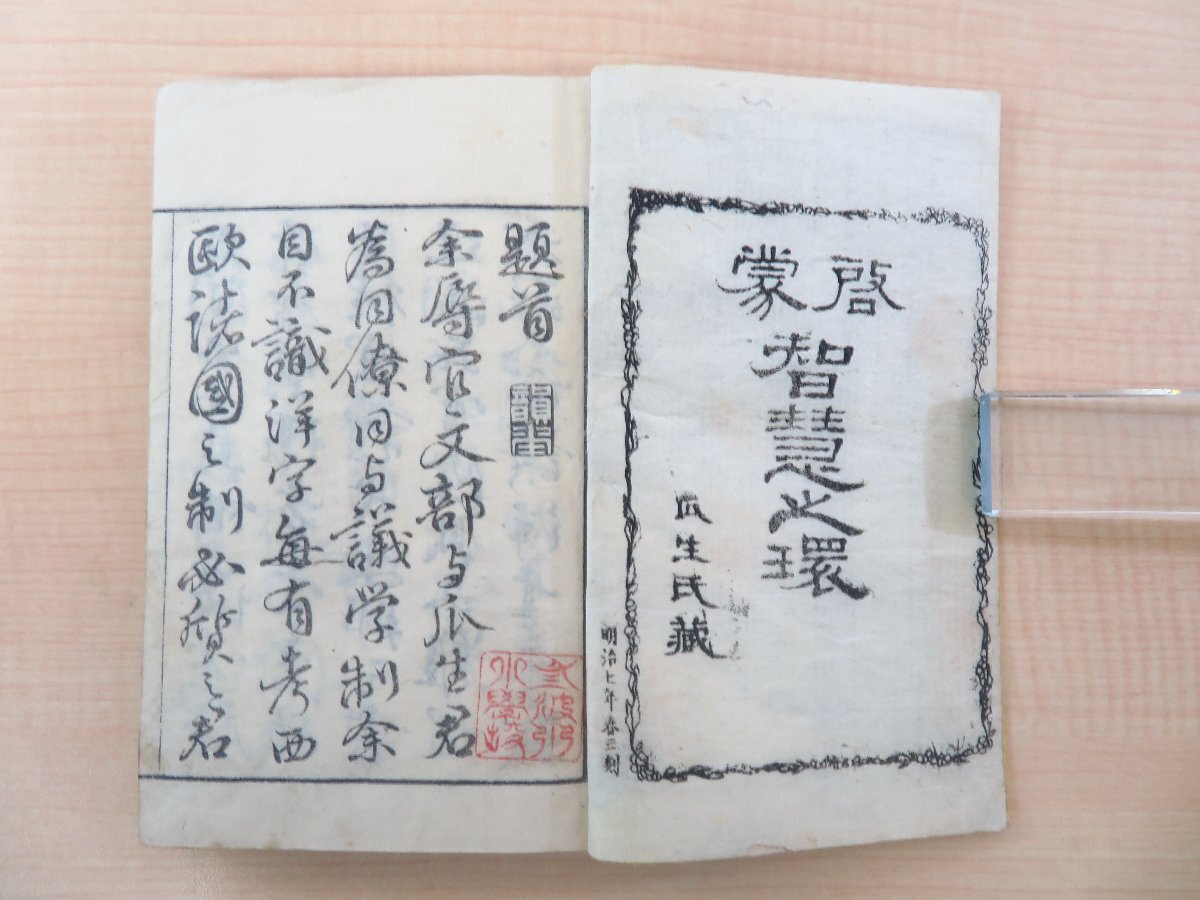 啓蒙
智慧之環
瓜生氏藏
明治七年春三刻
題首
余辱官文部与瓜生君
為同僚同与議学制余
目不識洋字每有考西
欧諸國之制必質之君